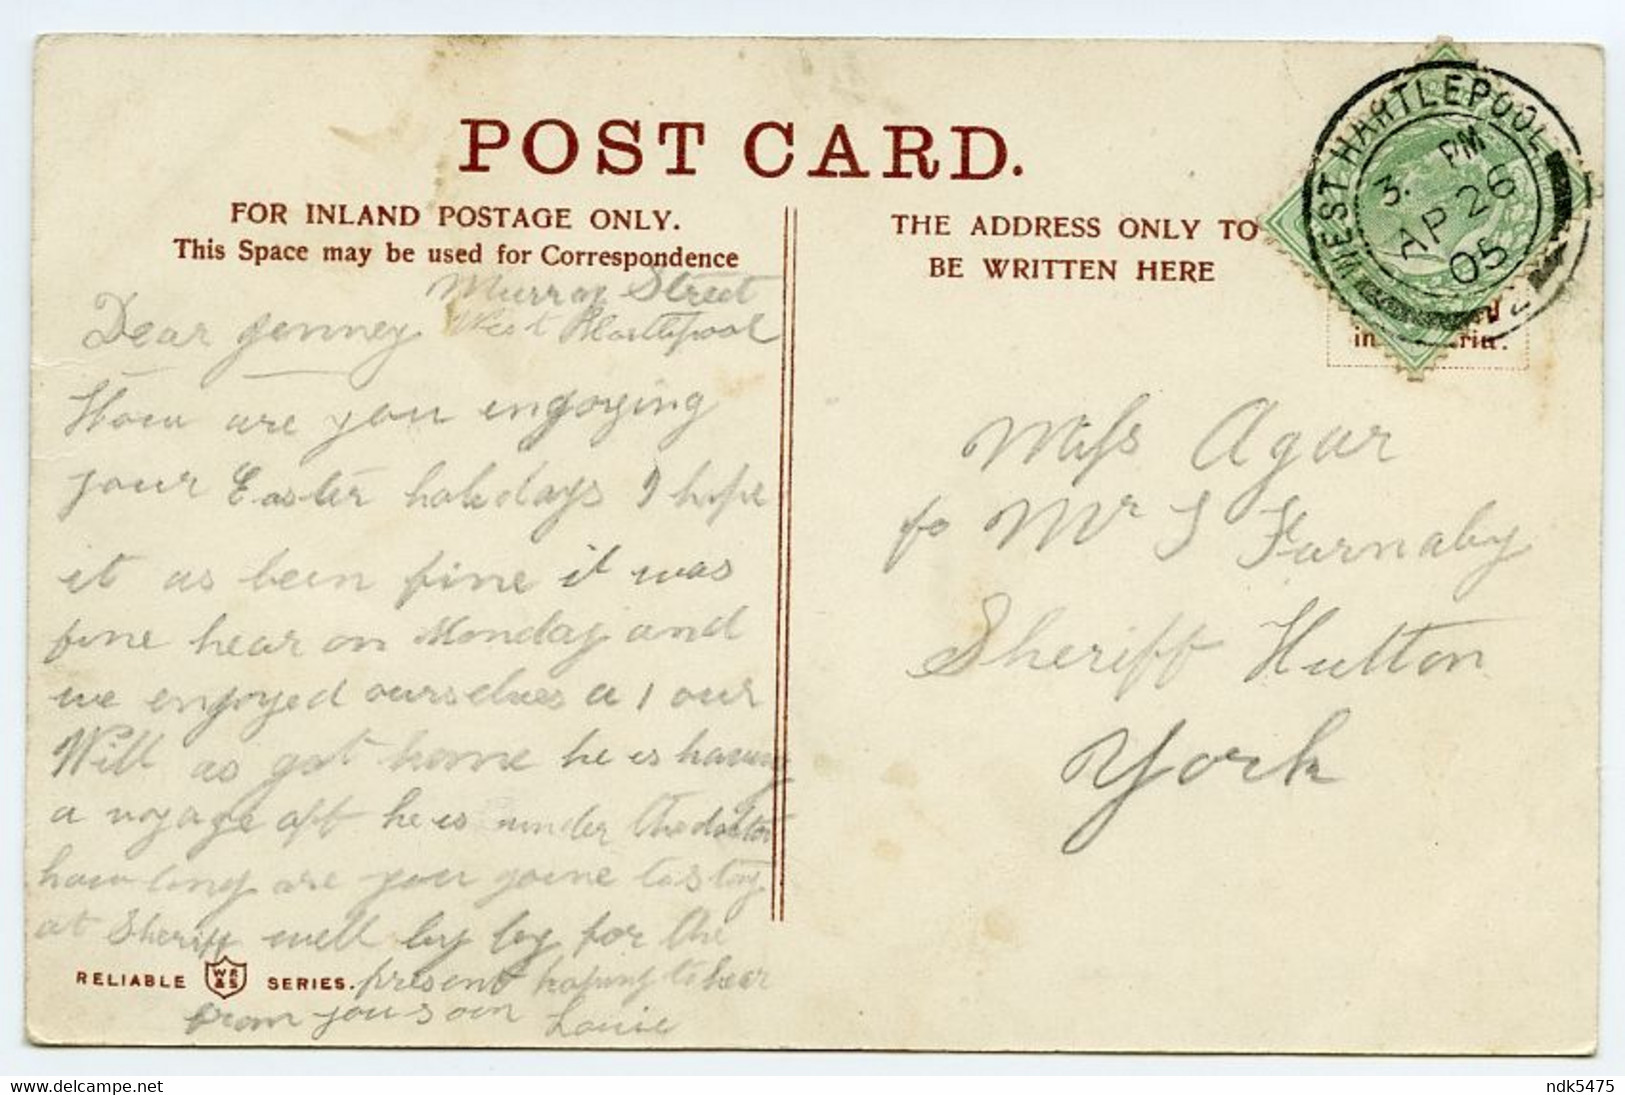 POST CARD.
FOR INLAND POSTAGE ONLY.
This Space may be used for Correspondence
THE ADDRESS ONLY TO
BE WRITTEN HERE
WEST HARTLEPOOL
3. PM
AP 26
05
Murray Street
West Hartlepool
Dear Jenney
How are you engoying
your Easter holidays I hope
it as been fine it was
fine hear on Monday and
we engoyed ourselves a 1 our
Will as got home he is having
a voyage oft he is under the doctor
how long are you goine to stay
at Sheriff well by by for the
present hoping to hear
from you soon Louie
Miss Agar
℅ Mr J Furnaby
Sheriff Hutton
York
RELIABLE WR &S SERIES.
delcampe.net
ndk5475